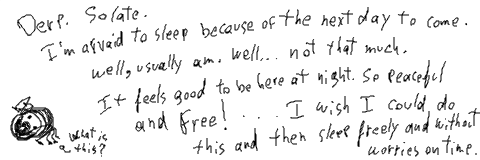 Derp. So late.
I'm afraid to sleep because of the next day to come.
well, usually am. well... not that much.
It feels good to be here at night. So peaceful
and free! .... I wish I could do
this and then sleep freely and without
worries on time.
what is
a this?